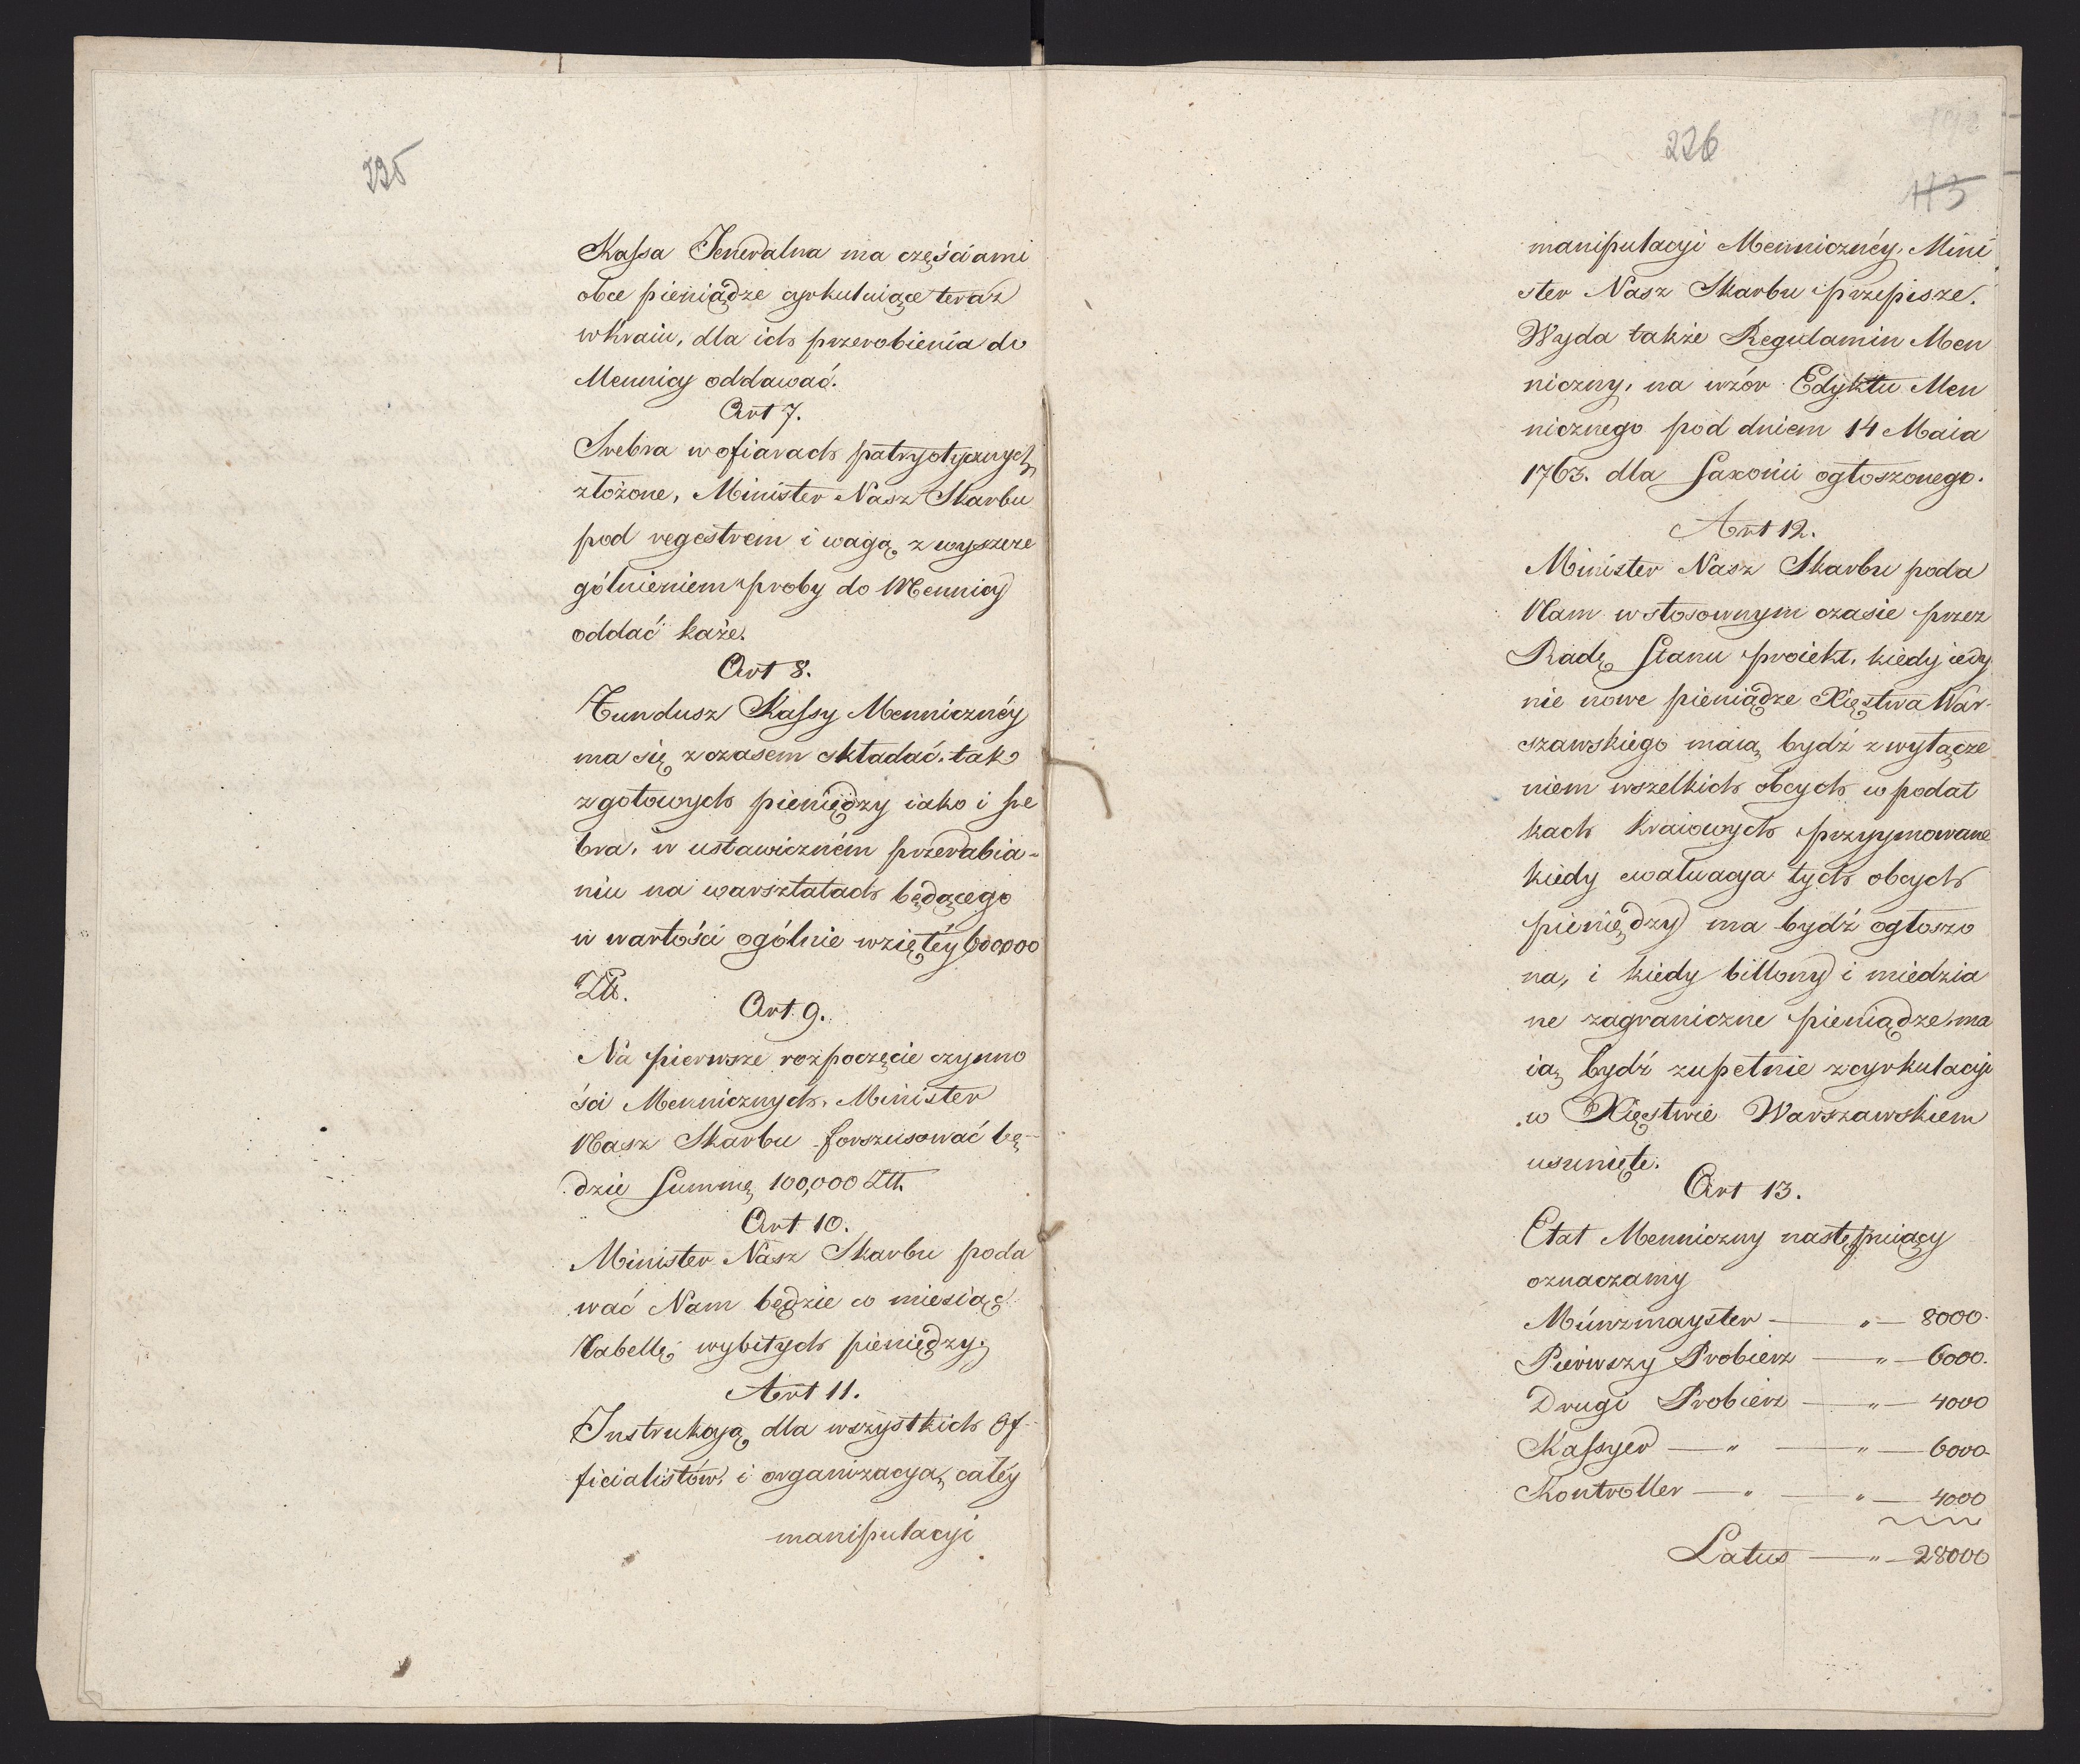 225
Kassa Jeneralna ma częściami
obce pieniądze cyrkuluiące teraz
w Kraiu, dla ich przerobienia do
Mennicy oddawać.
Art 7.
Srebra w ofiarach patryotycznych
złożone, Minister Nasz Skarbu
pod regestrem i wagą z wyszcze
gólnieniem proby do Mennicy
oddać każe.
Art 8.
Fundusz Kassy Mennicznéy
ma się z czasem składać tak
z gotowych pieniędzy iako i sre
bra, w ustawiczném przerabia-
niu na warsztatach będącego
w wartości ogólnie wziętéy 600,000
Złł.
Art. 9.
Na pierwsze rozpoczęcie czynno
ści Mennicznych, Minister
Nasz Skarbu forszusować bę-
dzie Summę 100,000 Złł.
Art 10.
Minister Nasz Skarbu poda
wać Nam będzie co miesiąc
Tabellę wybitych pieniędzy.
Art 11.
Instrukcyą dla wszystkich Of-
ficialistów, i organizacyą całéy
manipulacyi
226
113
manipulacyi Mennicznéy, Mini
ster Nasz Skarbu przepisze.
Wyda także Regulamin Men
niczny, na wzór Edyktu Men
nicznego pod dniem 14 Maia
1763. dla Saxonii ogłoszonego.
Art 12.
Minister Nasz Skarbu poda
Nam w stosownym czasie przez
Radę Stanu proiekt, kiedy iedy
nie nowe pieniądze Xięstwa War-
szawskiego maią bydź z wyłącze
niem wszelkich obcych w podat
kach Kraiowych przyymowane
kiedy ewaluacya tych obcych
pieniędzy ma bydź ogłoszo
na, i kiedy billony i miedzia
ne zagraniczne pieniądze, ma
ią bydź zupełnie z cyrkulacyi
w Xięstwie Warszawskiem
usunięte.
Art 13.
Etat Menniczny następuiący
oznaczamy
Münzmayster — " — 8000.
Pierwszy Probierz — " — 6000.
Drugi Probierz — " — 4000
Kassyer — " — " — 6000.
Kontroller — " — " — 4000
Latus — " — 28000